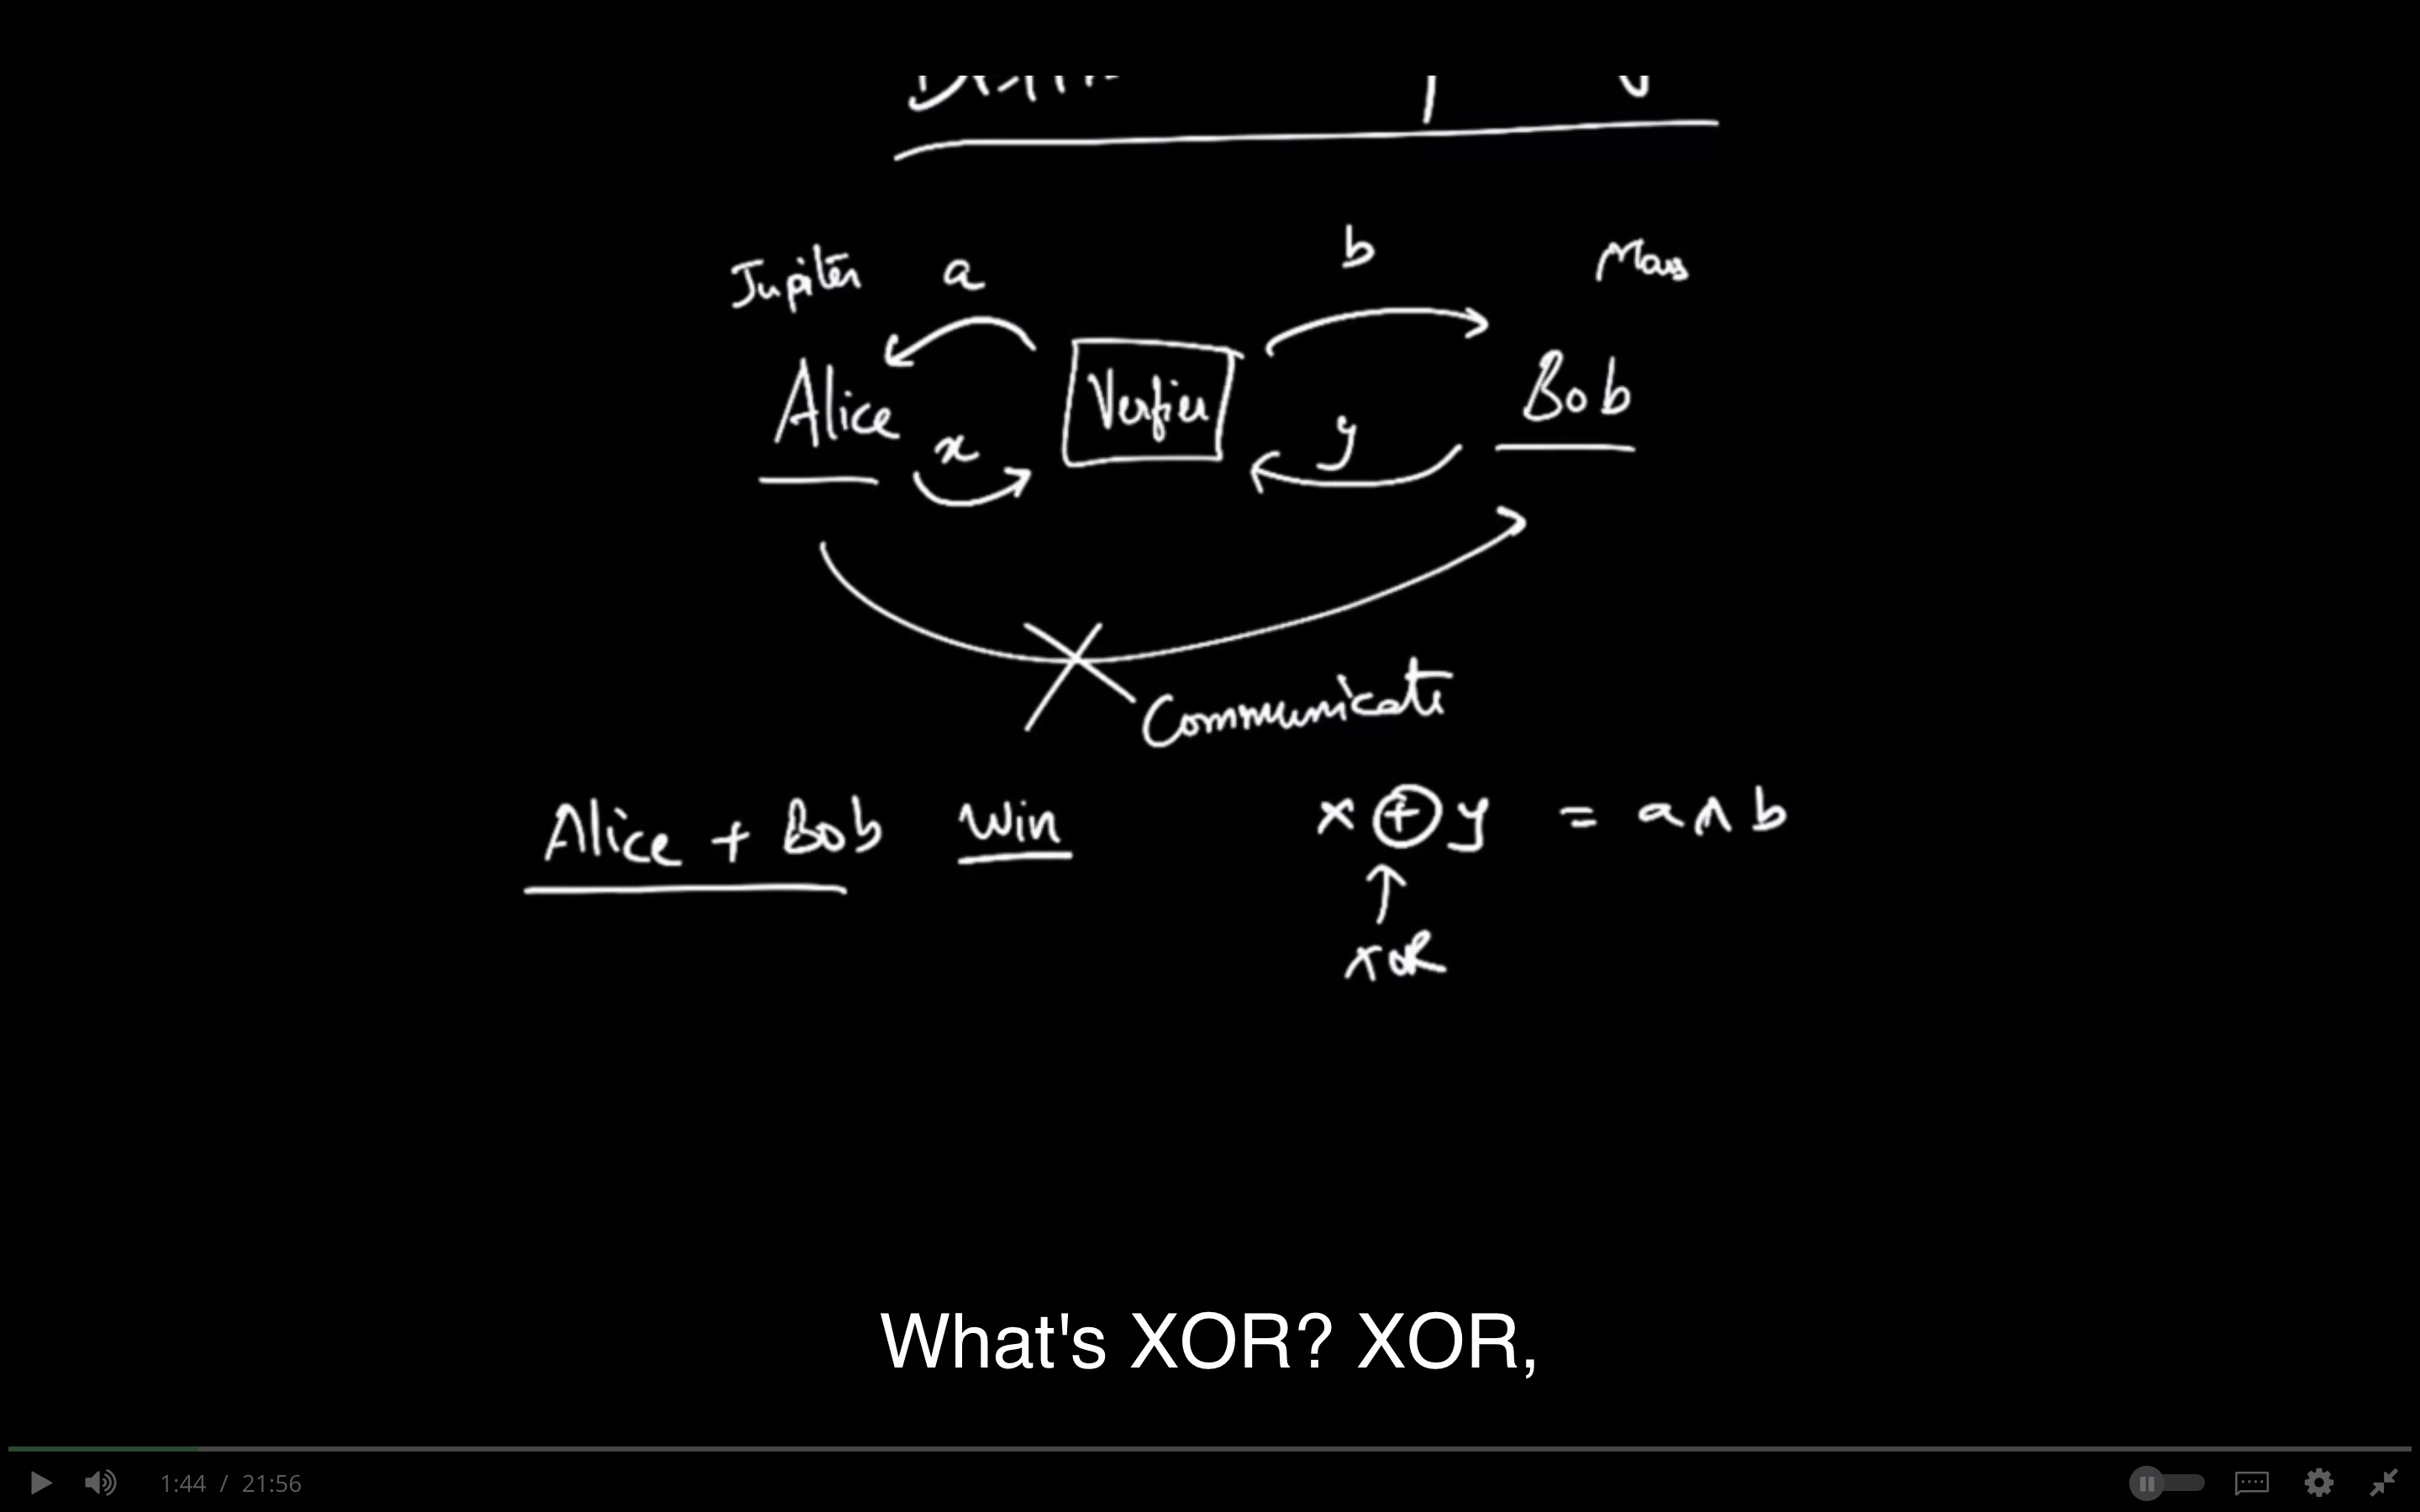 Jupiter a b Mars
Alice Verfier Bob
x y
Communicate
Alice + Bob Win x ⊕ y = a ∧ b
XOR
What's XOR? XOR,
1:44 / 21:56